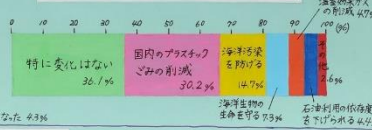 0 10 20 30 40 50 60 70 80 90 100 (%)
の削減 4.7
特に変化はない
36.1%
国内のプラスチック
ごみの削減
30.2%
海洋汚染
を防げる
14.7%
その他
2.6%
海洋生物の
生命を守る 7.3%
石油利用の依存度
を下げられる 4.4
なった 4.3%